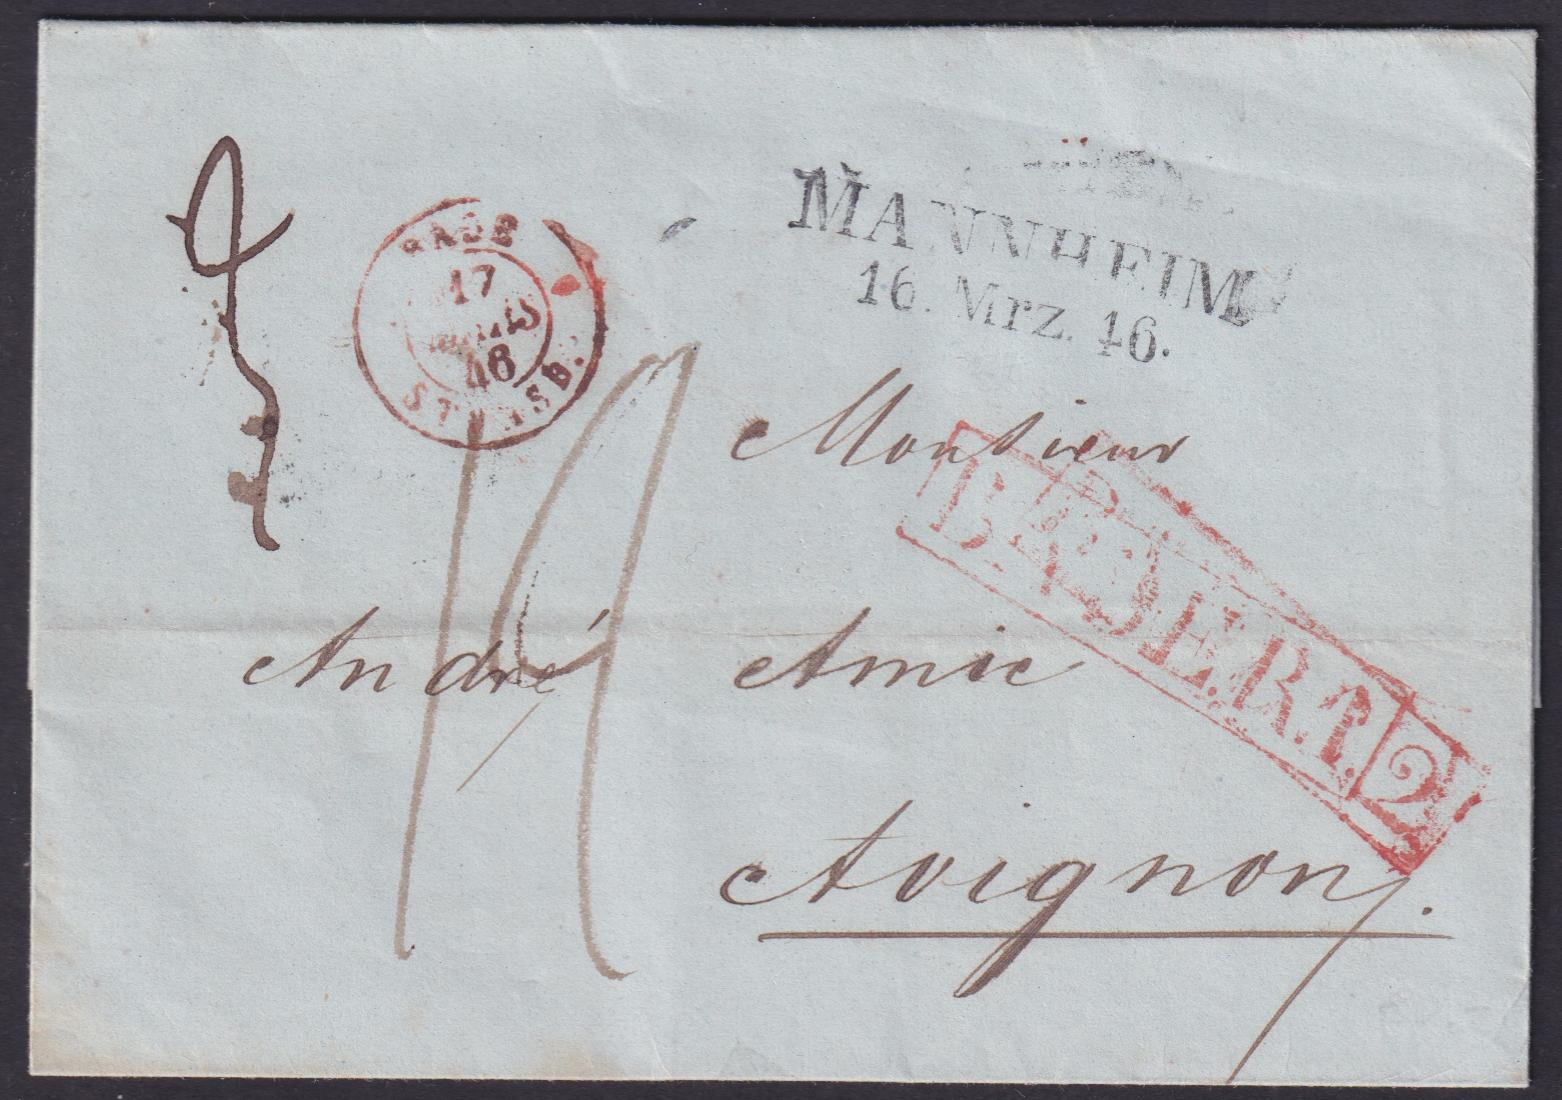 MANNHEIM
16. Mrz. 46.
BADE
17
MARS
46
STRASB.
Monsieur
André Amic
Avignon.
B.L.E.R.T. 2
19